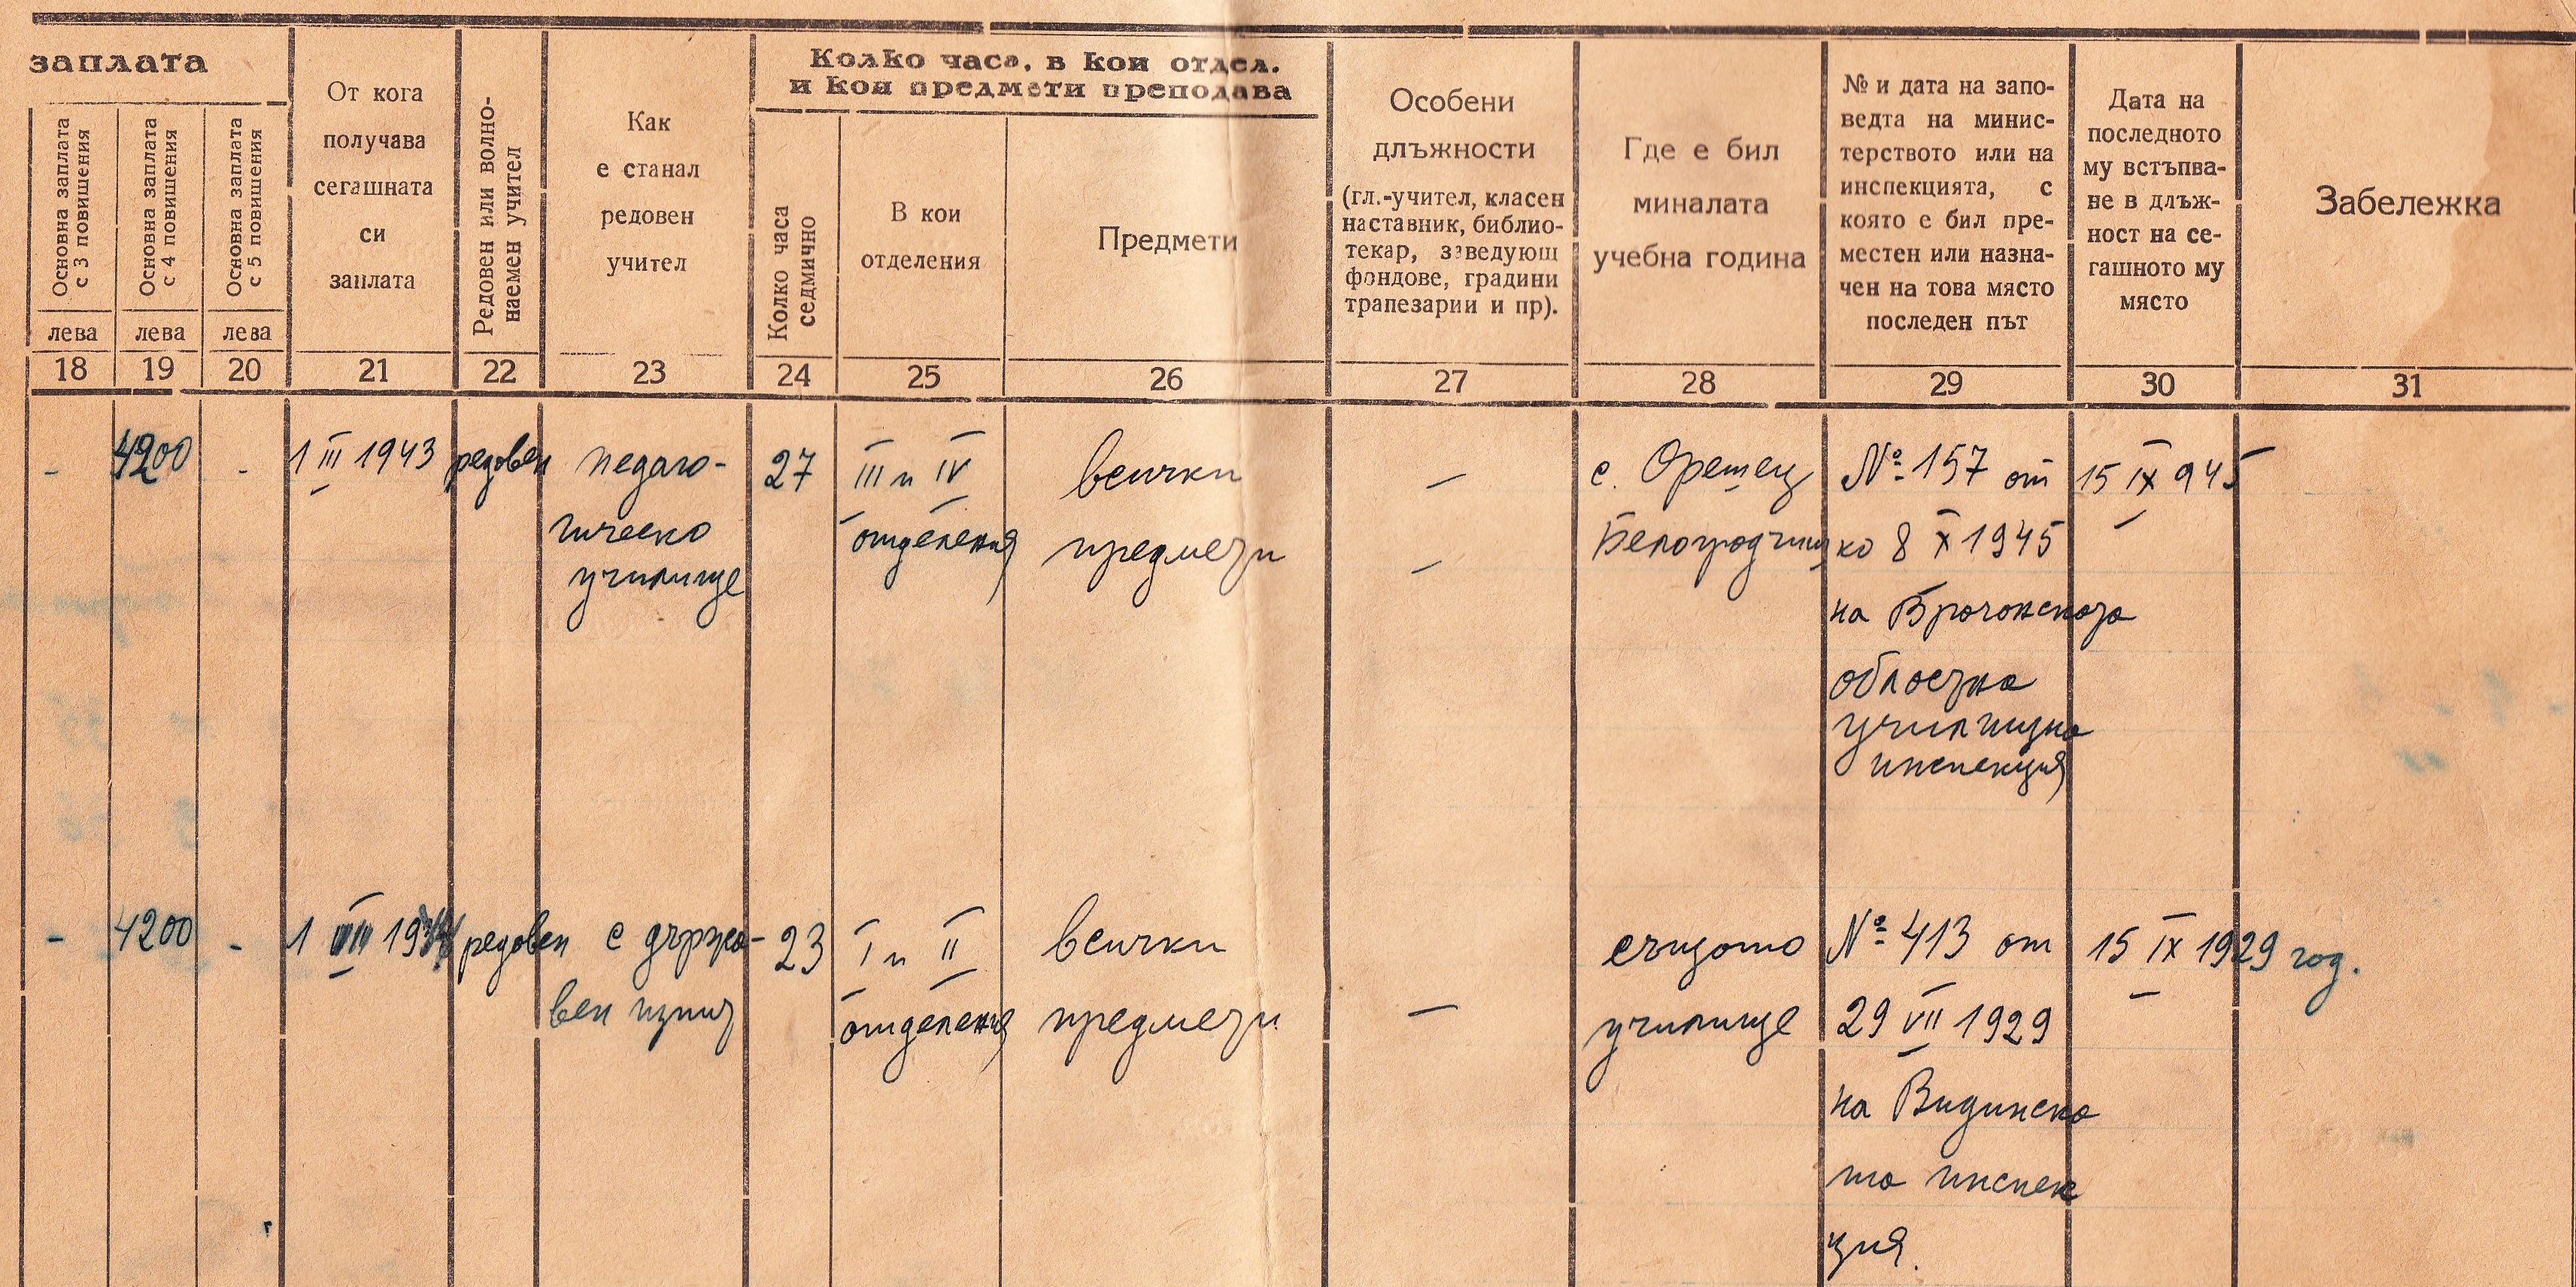 заплата
Основна заплата
с 3 повишения
лева
18
Основна заплата
с 4 повишения
лева
19
Основна заплата
с 5 повишения
лева
20
От кога
получава
сегашната
си
заплата
21
Редовен или волно-
наемен учител
22
Как
е станал
редовен
учител
23
Колко часа, в кои отдел.
и кои предмети преподава
Колко часа
седмично
24
В кои
отделения
25
Предмети
26
Особени
длъжности
(гл.-учител, класен
наставник, библио-
текар, заведующ
фондове, градини
трапезарии и пр).
27
Где е бил
миналата
учебна година
28
№ и дата на запо-
ведта на минис-
терството или на
инспекцията, с
която е бил пре-
местен или назна-
чен на това място
последен път
29
Дата на
последното
му встъпва-
не в длъж-
ност на се-
гашното му
място
30
Забележка
31
-
4200
-
1 III 1943
редовен
педаго-
гическо
училище
27
III и IV
отделения
всички
предмети
-
-
с. Орешец
Белоградчишко
№ 157 от
8 X 1945
на Врачанската
областна
училищна
инспекция
15 IX 945
-
4200
-
1 VIII
редовен
с държа-
вен изпит
23
I и II
отделения
всички
предмети
-
същото
училище
№ 413 от
29 VII 1929
на Видинска
та инспек
ция.
15 IX 1929 год.